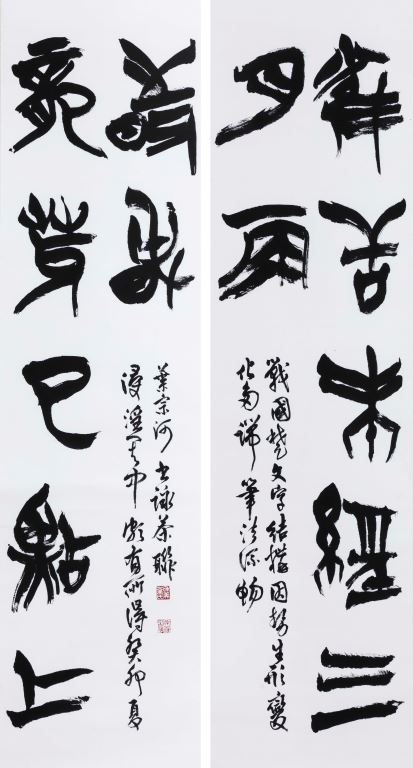 雀舌未經三
月雨
戰國楚文字結構因勢生形變
化多端筆法流暢
龍芽已點上
時春
浸淫其中頗有所得癸卯夏
葉宗河書詠茶聯